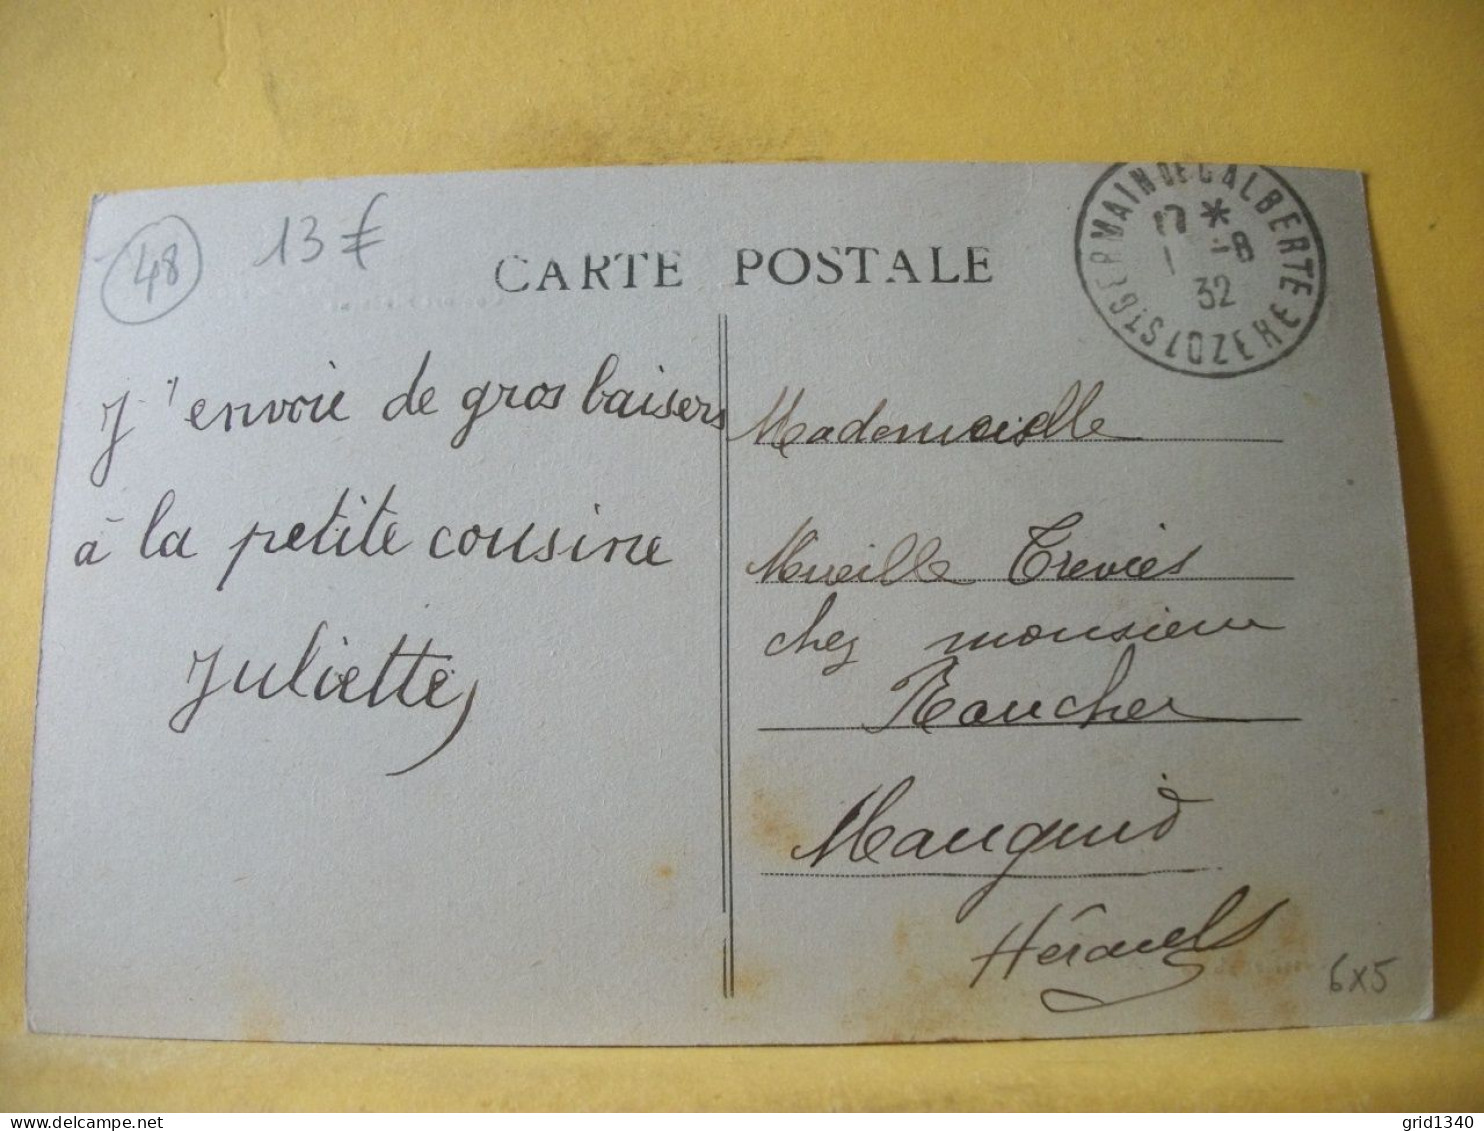 48
13 €
CARTE POSTALE
ST GERMAIN DE CALBERTE
LOZERE
17 *
1 -8
32
J'envoie de gros baisers
à la petite cousine
Juliette,
Mademoiselle
Mireille Treviès
chez monsieur
Mauguio
Hérault
6x5
grid1340